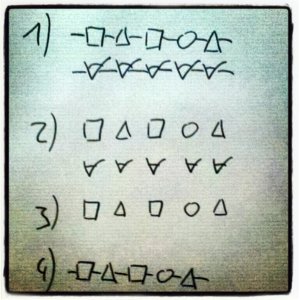 1) -□-△-□-○-△-
-∀-∀-∀-∀-∀-
2) □ △ □ ○ △
∀ ∀ ∀ ∀ ∀
3) □ △ □ ○ △
4) -□-△-□-○-△-